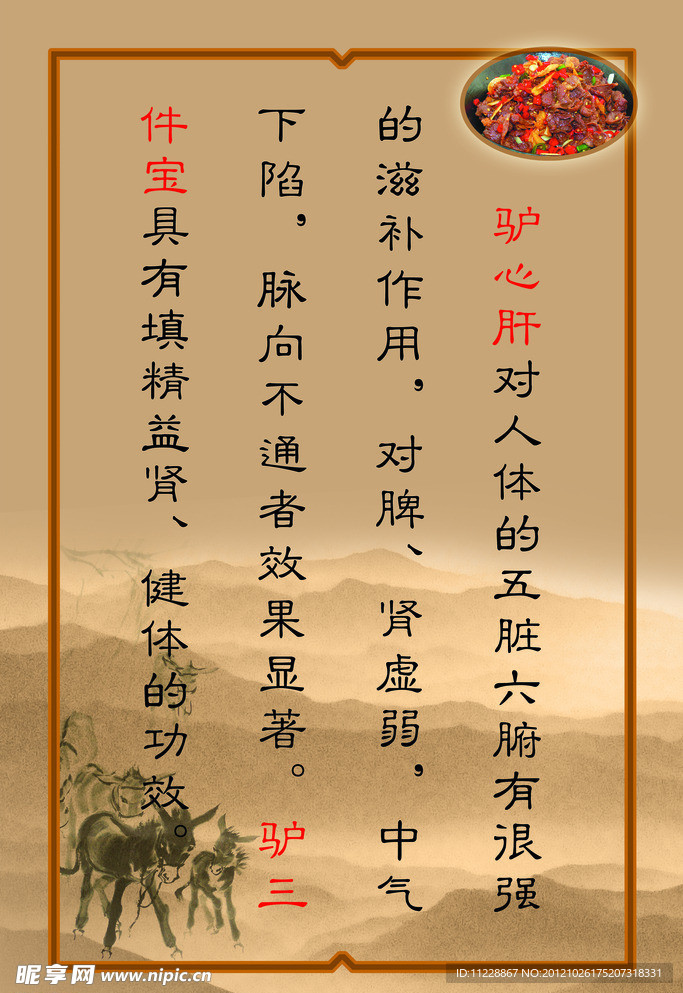 驴心肝对人体的五脏六腑有很强
的滋补作用，对脾、肾虚弱，中气
下陷，脉向不通者效果显著。驴三
件宝具有填精益肾、健体的功效。
昵享网 www.nipic.cn
ID:11228867 NO:20121026175207318331